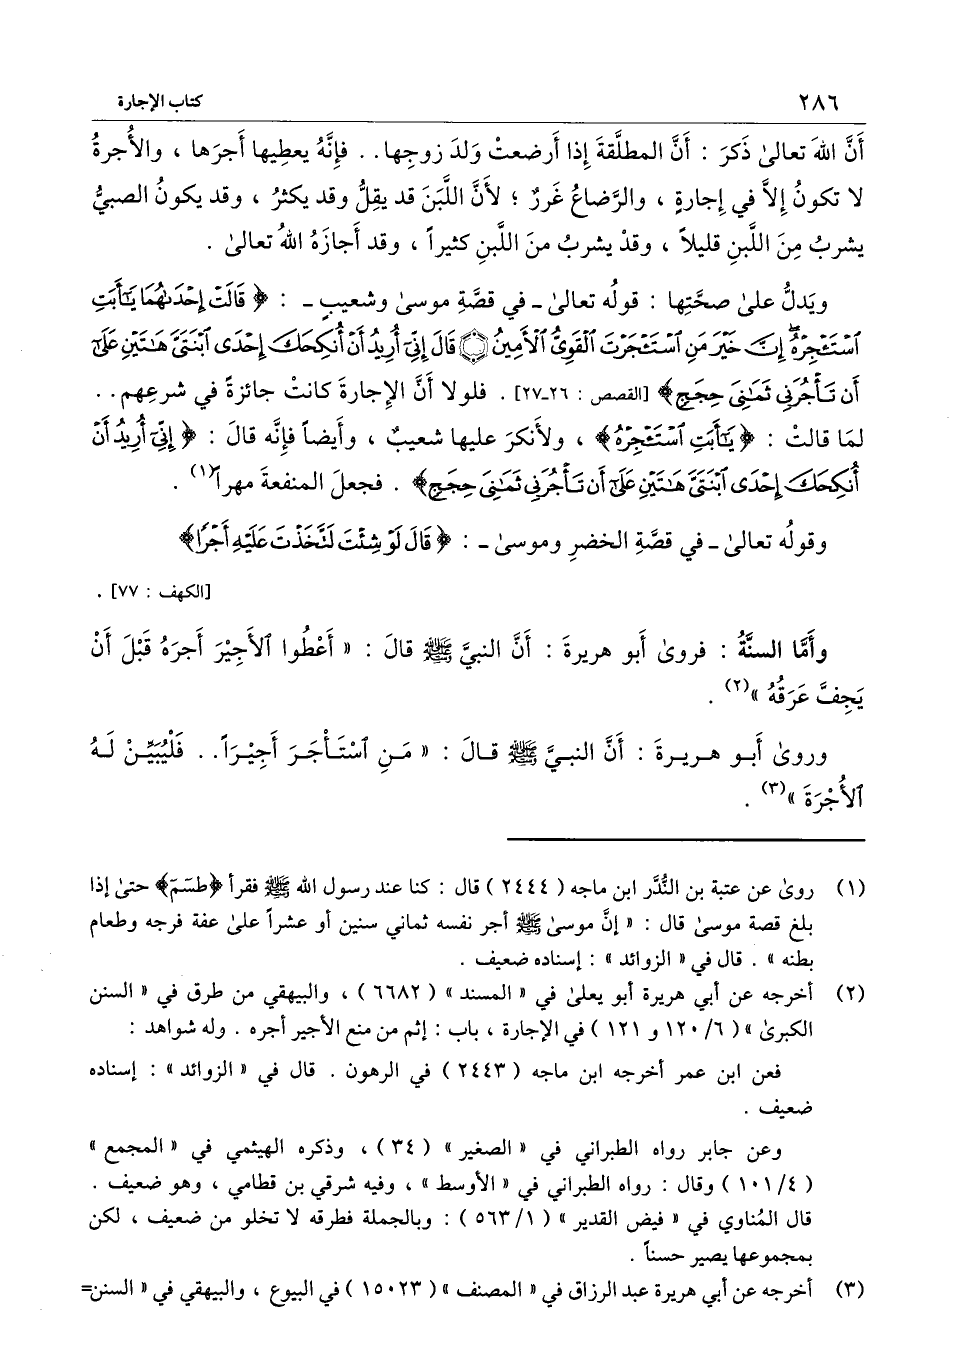 ٢٨٦ كتاب الإجارة
أَنَّ اللهَ تعالىٰ ذَكرَ : أَنَّ المطلَّقةَ إذا أَرضعتْ وَلدَ زوجِها.. فإِنَّهُ يعطِيها أَجرَها ، والأُجرةُ
لا تكونُ إِلاَّ في إِجارةٍ ، والرَّضاعُ غَررٌ ؛ لأنَّ اللَّبَنَ قد يقِلُّ وقد يكثرُ ، وقد يكونُ الصبيُّ
يشربُ مِنَ اللَّبنِ قليلاً ، وقدْ يشربُ منَ اللَّبنِ كثيراً ، وقد أَجازَهُ اللهُ تعالىٰ .
ويَدلُّ علىٰ صحَّتِها : قولُه تعالىٰ ـ في قصَّةِ موسىٰ وشعيبٍ ـ : ﴿ قَالَتْ إِحْدَىٰهُمَا يَٰٓأَبَتِ
ٱسْتَـْٔجِرْهُ إِنَّ خَيْرَ مَنِ ٱسْتَـْٔجَرْتَ ٱلْقَوِىُّ ٱلْأَمِينُ ۝ قَالَ إِنِّىٓ أُرِيدُ أَنْ أُنكِحَكَ إِحْدَى ٱبْنَتَىَّ هَٰتَيْنِ عَلَىٰٓ
أَن تَأْجُرَنِى ثَمَٰنِىَ حِجَجٍ ﴾ [القصص : ٢٦ـ٢٧] . فلولا أَنَّ الإِجارةَ كانتْ جائزةً في شرعِهم..
لمَا قالتْ : ﴿ يَٰٓأَبَتِ ٱسْتَـْٔجِرْهُ ﴾ ، ولأَنكرَ عليها شعيبٌ ، وأَيضاً فإِنَّه قالَ : ﴿ إِنِّىٓ أُرِيدُ أَنْ
أُنكِحَكَ إِحْدَى ٱبْنَتَىَّ هَٰتَيْنِ عَلَىٰٓ أَن تَأْجُرَنِى ثَمَٰنِىَ حِجَجٍ ﴾ . فجعلَ المنفعةَ مهراً(١) .
وقولُه تعالىٰ ـ في قصَّةِ الخضرِ وموسىٰ ـ : ﴿ قَالَ لَوْ شِئْتَ لَتَّخَذْتَ عَلَيْهِ أَجْرًا ﴾
[الكهف : ٧٧] .
وأَمَّا السنَّةُ : فروىٰ أَبو هريرةَ : أَنَّ النبيَّ ﷺ قالَ : « أَعْطُوا ٱلأَجِيْرَ أَجرَهُ قَبْلَ أَنْ
يَجِفَّ عَرَقُهُ »(٢) .
وروىٰ أَبو هريرةَ : أَنَّ النبيَّ ﷺ قالَ : « مَنِ ٱسْتَأْجَرَ أَجِيْرَاً.. فَلْيُبَيِّنْ لَهُ
ٱلأُجْرَةَ »(٣) .
(١) روىٰ عن عتبة بن النُّدَّر ابن ماجه ( ٢٤٤٤ ) قال : كنا عند رسول الله ﷺ فقرأ ﴿طسٓمٓ﴾ حتىٰ إذا
بلغ قصة موسىٰ قال : « إنَّ موسىٰ ﷺ أجر نفسه ثماني سنين أو عشراً علىٰ عفة فرجه وطعام
بطنه » . قال في « الزوائد » : إسناده ضعيف .
(٢) أخرجه عن أبي هريرة أبو يعلىٰ في « المسند » ( ٦٦٨٢ ) ، والبيهقي من طرق في « السنن
الكبرىٰ » ( ٦/ ١٢٠ و ١٢١ ) في الإجارة ، باب : إثم من منع الأجير أجره . وله شواهد :
فعن ابن عمر أخرجه ابن ماجه ( ٢٤٤٣ ) في الرهون . قال في « الزوائد » : إسناده
ضعيف .
وعن جابر رواه الطبراني في « الصغير » ( ٣٤ ) ، وذكره الهيثمي في « المجمع »
( ٤/ ١٠١ ) وقال : رواه الطبراني في « الأوسط » ، وفيه شرقي بن قطامي ، وهو ضعيف .
قال المُناوي في « فيض القدير » ( ١/ ٥٦٣ ) : وبالجملة فطرقه لا تخلو من ضعيف ، لكن
بمجموعها يصير حسناً .
(٣) أخرجه عن أبي هريرة عبد الرزاق في « المصنف » ( ١٥٠٢٣ ) في البيوع ، والبيهقي في « السنن=